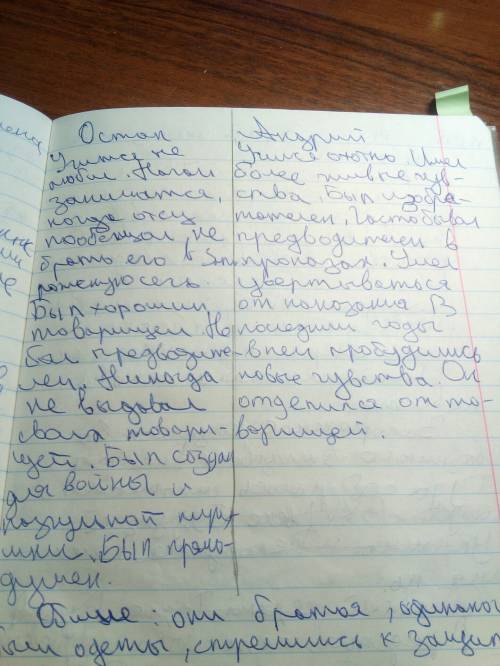 Остап
Учится не
любил. Начал
заниматся,
когда отец
пообещал не
брать его в Запо
рожскую сечь.
Был хорошим
товарищем. Но
был предводите-
лем. Никогда
не выдавал
своих товари-
щей. Был создан
для войны и
разгульной пиру-
шки. Был прямо-
душен.
Андрий
Учился охотно. Имел
более живые чув-
ства. Был изобре-
тателен. Часто бывал
предводителем в
проказах. Умел
увертываться
от наказания. В
последнии годы
в нем пробудились
новые чувства. Он
отделился от то-
варищей.
Общие: они братья, одинаково
были одеты, стремились к защит